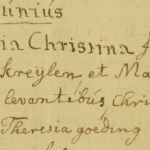 Junius
ia Christina f
Kreylen, et Ma
levantibús Chri
Theresia goeding